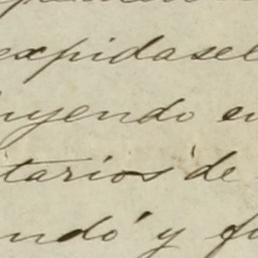 expidasel
uyendo en
itarios de
ndó y fi